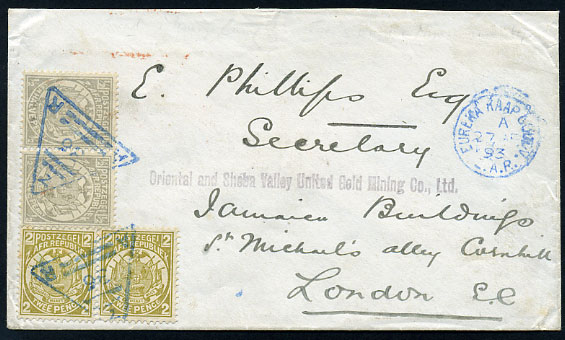 E. Phillips Esq
Secretary
Oriental and Sheba Valley United Gold Mining Co., Ltd.
Jamaica Buildings
St Michael's alley Cornhill
London E.C
EUREKA KAAP
A
27
93
Z.A.R.
2 POSTZEGEL 2
Z.AFR.REPUBLIEK
TWEE PENCE
2 POSTZEGEL 2
TWEE PENCE